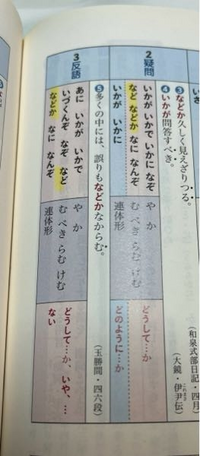 ③などか久しく見えざりつる。
（和泉式部日記・四月）
④いかが問答すべき。
（大鏡・伊尹伝）
2 疑問
いかが いかで いかに なぞ
など などか なに なんぞ
や か
む べき らむ けむ
連体形
どうして…か
いかが いかに
どのように…か
⑤多くの中には、誤りもなどかなからむ。
（玉勝間・四六段）
3 反語
あに いかが いかで
いづくんぞ なぞ など
などか なに なんぞ
や か
む べき らむ けむ
連体形
どうして…か、いや、…
ない